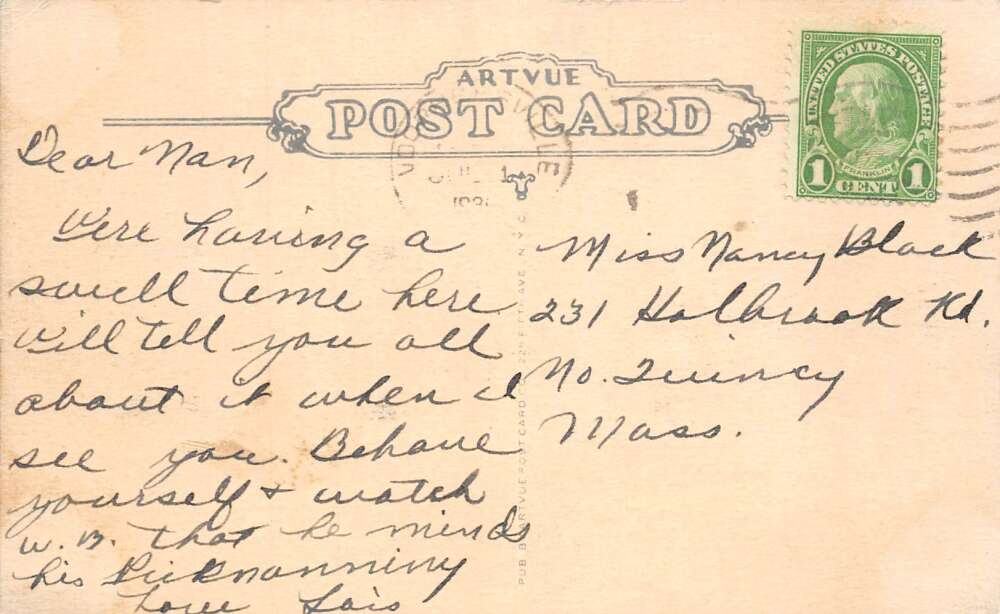 ARTVUE
POST CARD
UNITED STATES POSTAGE
FRANKLIN
1 CENT 1
VILLE
JUL 1
Dear Nan,
We're having a
swell time here
Will tell you all
about it when I
see you. Behave
yourself & watch
W.B. that he minds
his
Love Lois
Miss Nancy Black
231 Holbrook Rd.
No. Quincy
Mass.
PUB. BY ARTVUE POST CARD CO. 225 FIFTH AVE. N.Y.C.